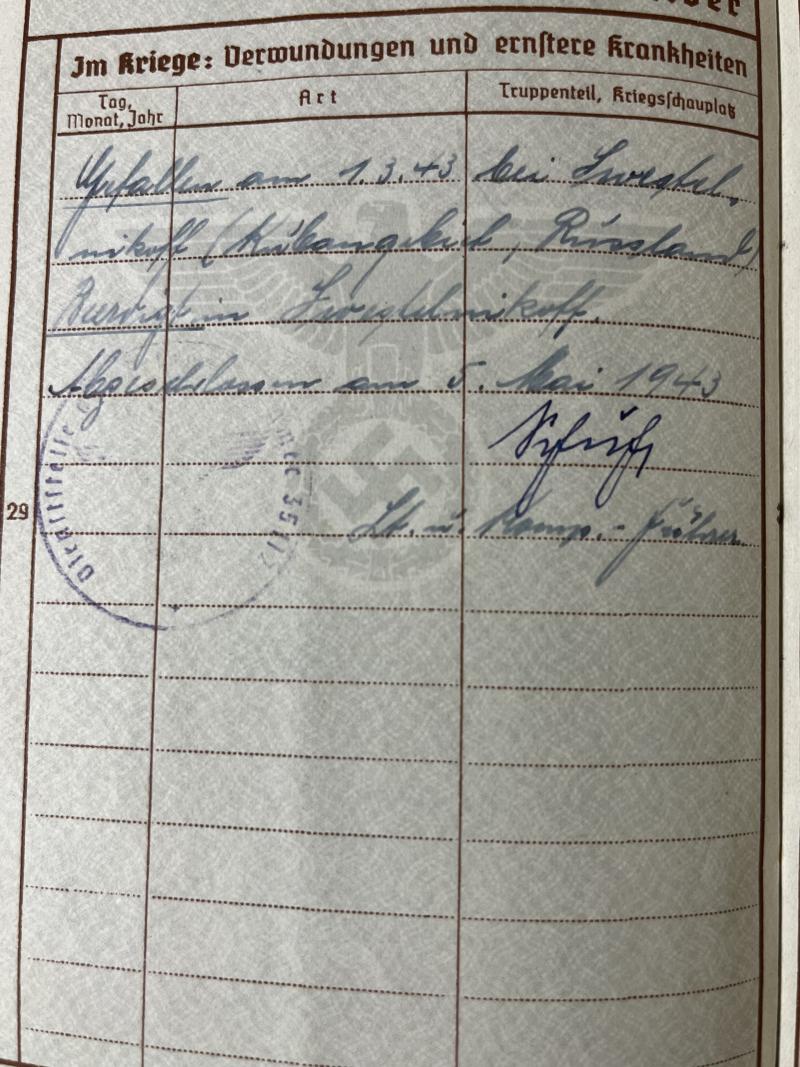 Im Kriege: Verwundungen und ernstere Krankheiten
Tag, Monat, Jahr
Art
Truppenteil, Kriegsschauplatz
Gefallen am 1.3.43 bei Swestel-
nikoff (Kubangebiet, Russland)
Beerdigt in Swestelnikoff.
Abgeschlossen am 5. Mai 1943
Lt. u. Komp.-Führer
Dienststelle
29